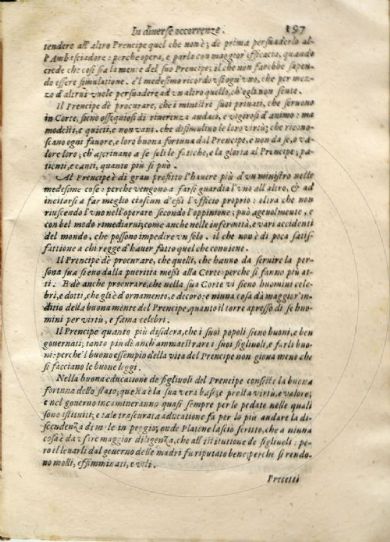 In diuerse occorrenze. 197
tendere all'altro Prencipe quel che non è; de prima persuaderlo al-
l'Ambasciadore: perche opera, e parla con maggior efficacia, quando
crede che così sia la mente del suo Prencipe; il che non farebbe sapen-
do essere simulatione. e'l medesimo ricordo ogni vno, che per mez-
zo d'altrui vuole persuadere ad vn'altro quello, ch'egli non sente.
Il Prencipe dè procurare, che i ministri suoi priuati, che seruono
in Corte, sieno ossequiosi di riuerenza audaci, e vigorosi d'animo: ma
modesti, e quieti, e non vani, che dissimulino le loro virtù; che ricono-
scano ogni fauore, e loro buona fortuna dal Prencipe, e non da se, o va-
lore loro; ch'ascriuano a se soli le fatiche, e la gloria al Prencipe; pa-
tienti, e canti, quanto più si può.
Al Prencipe è di gran profitto l'hauere più d'vn ministro nelle
medesime cose: perche vengono a farsi guardia l'vno all'altro, & ad
incitarsi a far meglio ciascun d'essi l'officio proprio: oltra che non
riuscendo l'vno nell'operare secondo l'oppinione; può ageuolmente, e
con bel modo rimediarui; come anche nelle infermità, e vari accidenti
del mondo, che possono impedire vn solo. il che non è di poca satis-
fattione a chi regge d'hauer fatto quel che conuiene.
Il Prencipe dè procurare, che quelli, che hanno da seruire la per-
sona sua sieno dalla pueritia messi alla Corte perche si fanno più at-
ti. E dè anche procurare, che nella sua Corte vi sieno huomini cele-
bri, e dotti, che gli è d'ornamento, e decoro; e niuna cosa dà maggior in-
ditio della buona mente del Prencipe, quanto il torre appresso di se huo-
mini per virtù, e fama celebri.
Il Prencipe quanto più disidera, che i suoi popoli sieno buoni, e ben
gouernati; tanto più dè anch'ammaestrare i suoi figliuoli, e farli buo-
ni: perche'l buono essempio della vita del Prencipe non gioua meno che
si facciano le buone leggi.
Nella buona educatione de figliuoli del Prencipe consiste la buona
fortuna dello stato; questa è la sua vera base; e presta virtù, e valore;
e nel gouerno incominciano quasi sempre per le pedate nelle quali
sono istituiti; e tale trascurata educatione fa per lo più andare la di-
scendenza di male in peggio; onde Platone lasciò scritto, che a niuna
cosa è da vsare maggior diligenza, che all'istitutione de figliuoli; pe-
rò il leuarli dal gouerno delle madri fu riputato bene; perche si rendo-
no molli, effeminati, e vili.
Precetti